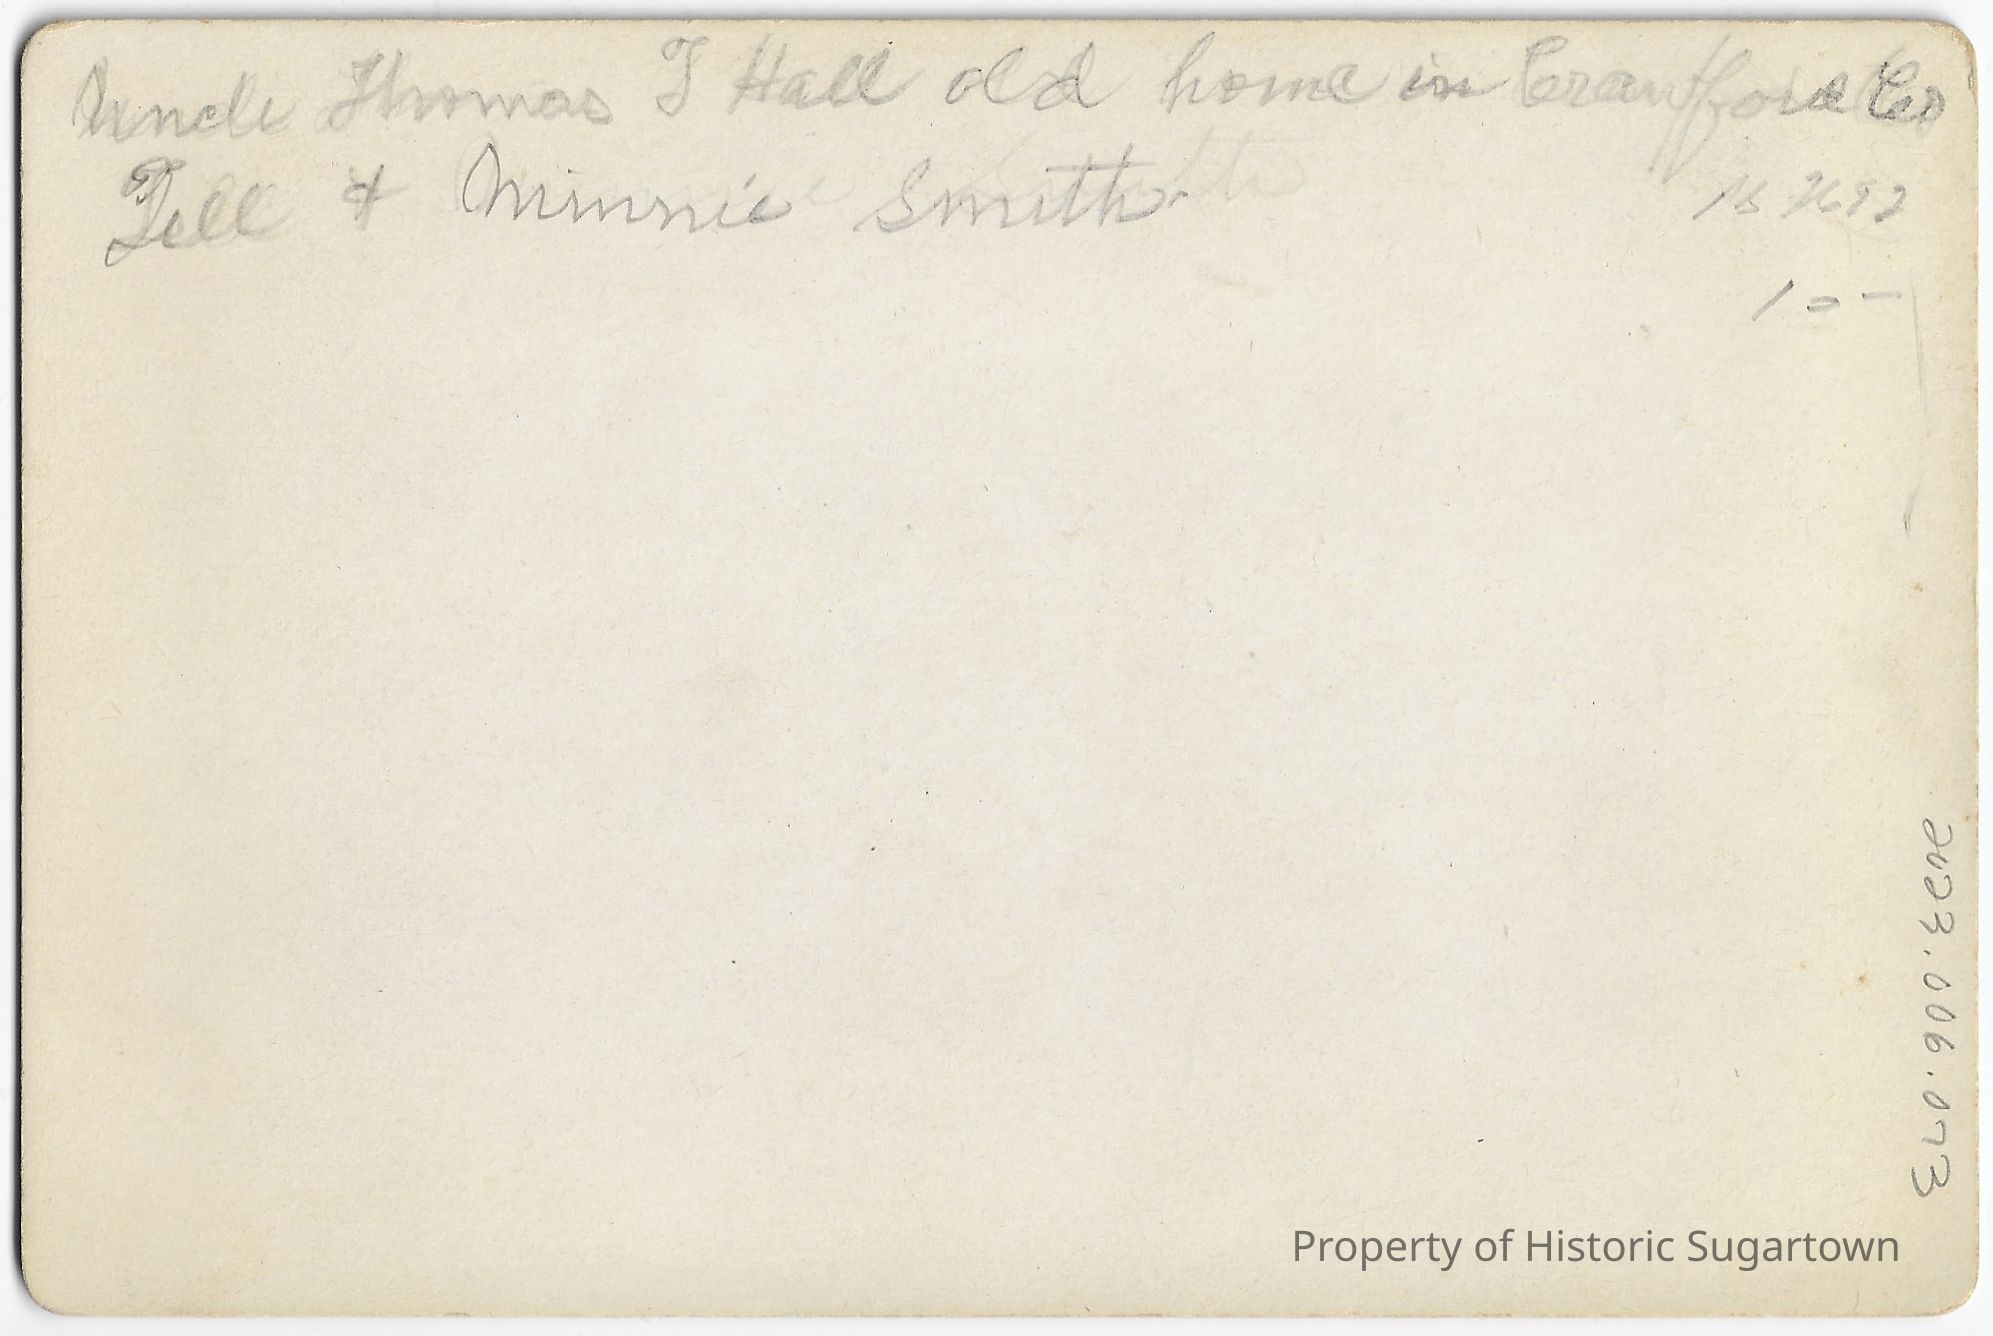 Uncle Thomas T Hall old home in Crawford Co
Tell & Minnie Smith
100
2023.006.073
Property of Historic Sugartown